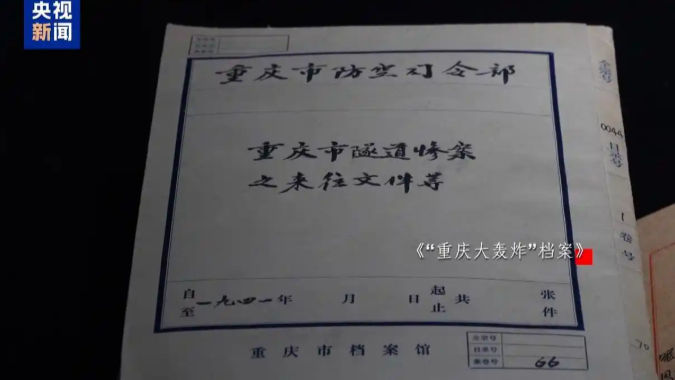 央视
新闻
重庆市防空司令部
全宗号
0044
目录号
1
卷号
重庆市隧道惨案
之来往文件等
《“重庆大轰炸”档案》
自
至
一九四一年 月 日
起
止
共
张
件
重庆市档案馆
全宗号
目录号
案卷号 66